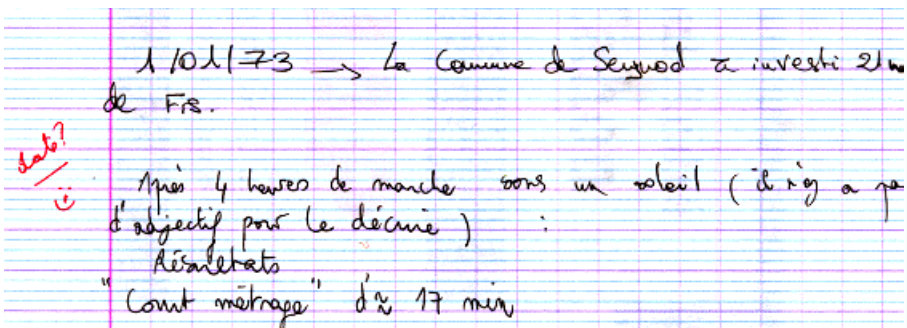 1/01/73 → La Commune de Seynod a investi 21 m
de Frs.
date?
Après 4 heures de marche sous un soleil (il n'y a pa
d'adjectif pour le décrire) :
Résultats
"Court métrage" d'≈ 17 min